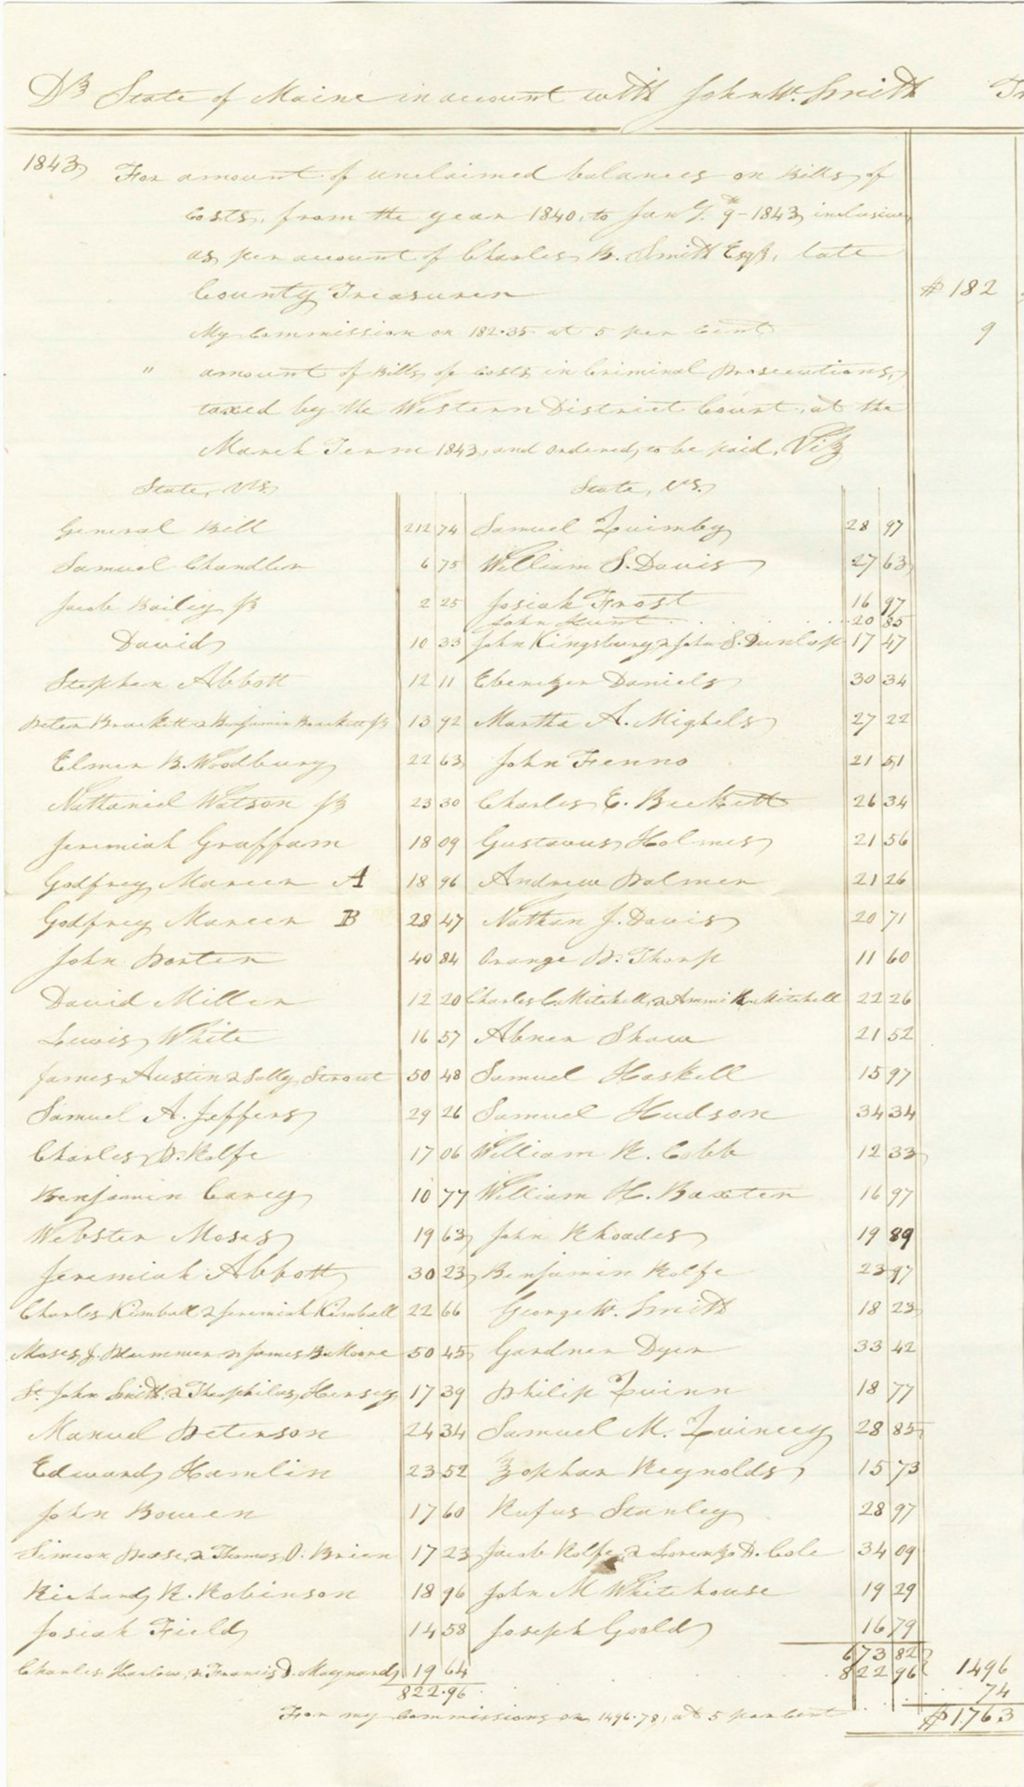 Dr State of Maine in account with John W. Smith
1843 For amount of unclaimed balances on Bills of
Costs, from the year 1840, to Jany. 9th - 1843 inclusive
as per account of Charles B. Smith Esqr, late
County Treasurer $182
My Commission on 182.35 at 5 per Cent 9
" amount of Bills of Costs in Criminal Prosecutions,
taxed by the Western District Court, at the
March Term 1843, and ordered to be paid, Viz
State, vs. State, vs.
General Bill 212 74 Samuel Quimby 28 97
Samuel Chandler 6 75 William S. Davis 27 63
Jacob Bailey Jr 2 25 Josiah Frost 16 97
John Hunt 20 85
David 10 33 John Kingsbury & John S. Dunlap 17 47
Stephen Abbott 12 11 Ebenezer Daniels 30 34
Peter Brackett & Benjamin Brackett Jr 13 92 Martha A. Mighels 27 22
Elmer B. Woodbury 22 63 John Fenno 21 51
Nathaniel Watson Jr 23 30 Charles E. Beckett 26 34
Jeremiah Graffam 18 09 Gustavus Holmes 21 56
Godfrey Mareen A 18 96 Andrew Palmer 21 26
Godfrey Mareen B 28 47 Nathan J. Davis 20 71
John Porten 40 84 Orange P. Thorp 11 60
David Miller 12 20 Charles C. Mitchell, & Ammi R. Mitchell 22 26
Lewis White 16 57 Abner Shaw 21 52
James Austin & Solly Strout 50 48 Samuel Haskell 15 97
Samuel A. Jeffers 29 26 Samuel Hudson 34 34
Charles P. Rolfe 17 06 William R. Cobb 12 33
Benjamin Carey 10 77 William H. Baxter 16 97
Webster Moses 19 63 John Rhoades 19 89
Jeremiah Abbott 30 23 Benjamin Rolfe 23 97
Charles Kimball & Jeremiah Kimball 22 66 George W. Smith 18 23
Moses J. Plummer & James B. Moore 50 45 Gardner Dyer 33 42
St. John Smith & Theophilus Hersey 17 39 Philip Quinn 18 77
Manuel Peterson 24 34 Samuel M. Quincey 28 85
Edward Hamlin 23 52 Zophar Reynolds 15 73
John Bowen 17 60 Rufus Stanley 28 97
Simeon Pease, & Thomas O. Brien 17 23 Jacob Rolfe, & Lorenzo D. Cole 34 09
Richard R. Robinson 18 96 John M Whitehouse 19 29
Josiah Field 14 58 Joseph Goold 16 79
673 82
Charles Harlow, & Francis D. Maynard 19 64 822 96 1496
822.96 74
For my Commissions on 1496.78, at 5 per Cent $1763